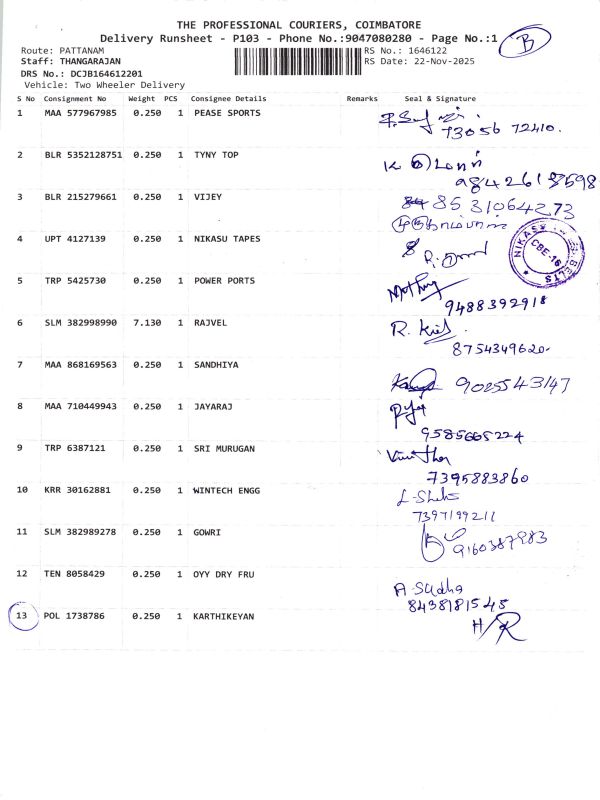 THE PROFESSIONAL COURIERS, COIMBATORE
Delivery Runsheet - P103 - Phone No.:9047080280 - Page No.:1
B
Route: PATTANAM
RS No.: 1646122
Staff: THANGARAJAN
RS Date: 22-Nov-2025
DRS No.: DCJB164612201
Vehicle: Two Wheeler Delivery
S No Consignment No Weight PCS Consignee Details Remarks Seal & Signature
1 MAA 577967985 0.250 1 PEASE SPORTS
73056 72410.
2 BLR 5352128751 0.250 1 TYNY TOP
9842618598
3 BLR 215279661 0.250 1 VIJEY
85 31064273
4 UPT 4127139 0.250 1 NIKASU TAPES
CBE-16
BELTS
5 TRP 5425730 0.250 1 POWER PORTS
9488392918
6 SLM 382998990 7.130 1 RAJVEL
8754349620.
7 MAA 868169563 0.250 1 SANDHIYA
9025543147
8 MAA 710449943 0.250 1 JAYARAJ
9585665224
9 TRP 6387121 0.250 1 SRI MURUGAN
7395883860
10 KRR 30162881 0.250 1 WINTECH ENGG
7397199211
11 SLM 382989278 0.250 1 GOWRI
9160387983
12 TEN 8058429 0.250 1 OYY DRY FRU
A-Sudha
8438181545
13 POL 1738786 0.250 1 KARTHIKEYAN
H/R